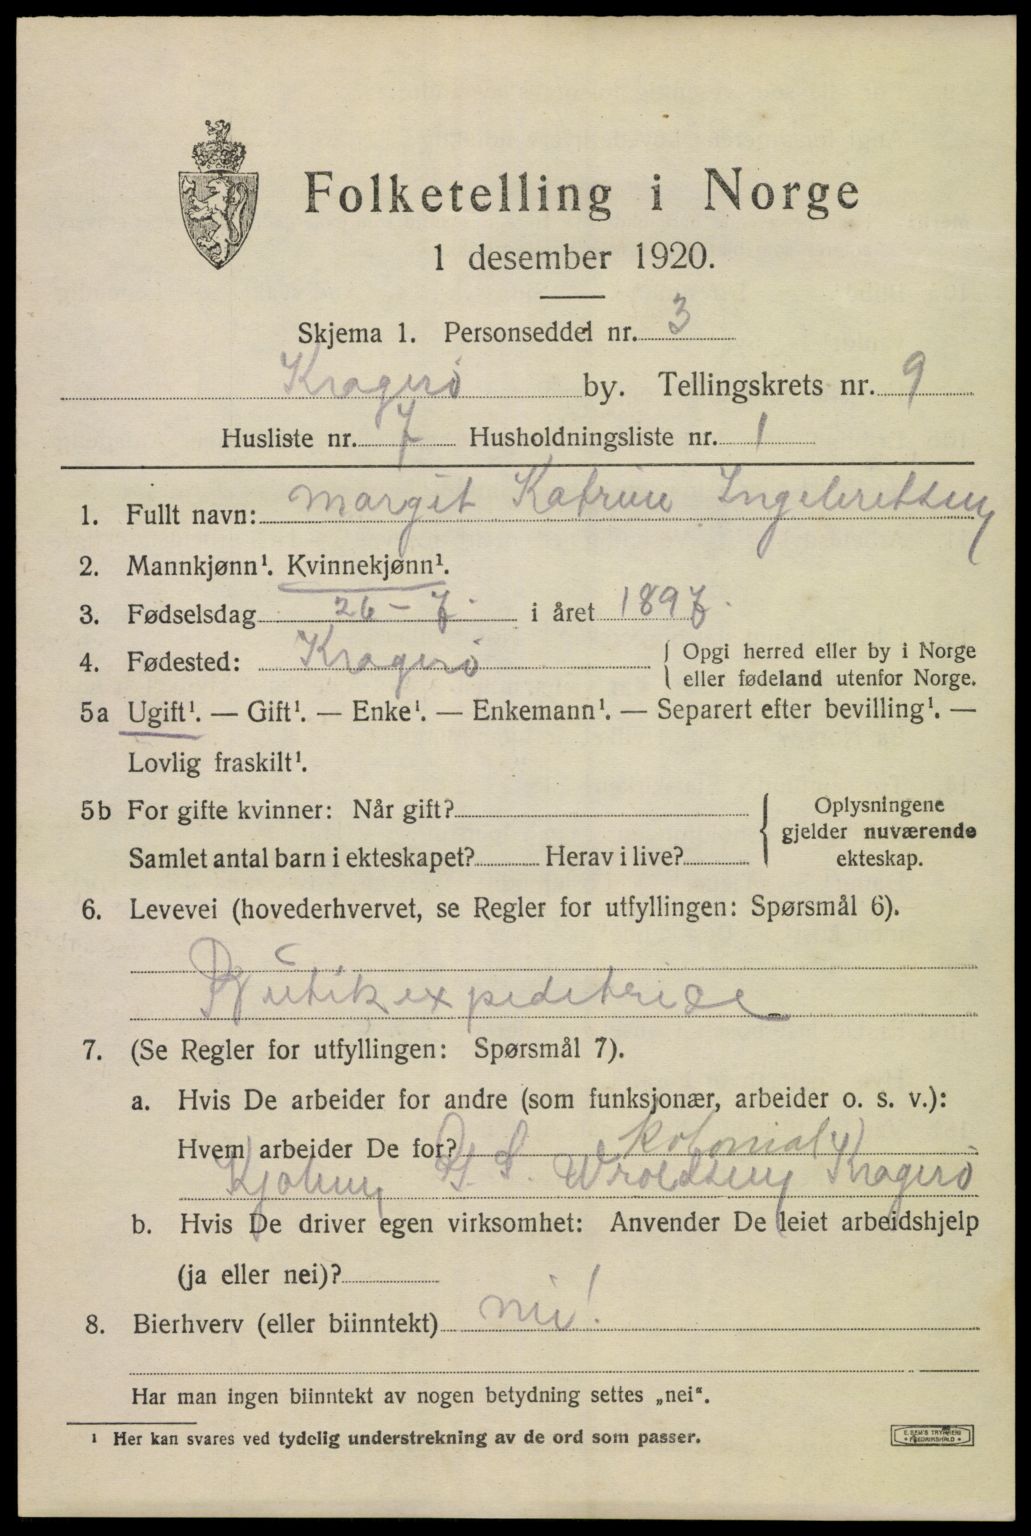 Folketelling i Norge
1 desember 1920.
Skjema 1. Personseddel nr. 3
Kragerö by. Tellingskrets nr. 9
Husliste nr. 7 Husholdningsliste nr. 1
1. Fullt navn: Margit Katrine Ingebretsen
2. Mannkjønn¹. Kvinnekjønn¹.
3. Fødselsdag 26-7. i året 1897.
4. Fødested: Kragerö { Opgi herred eller by i Norge
eller fødeland utenfor Norge.
5a Ugift¹. — Gift¹. — Enke¹. — Enkemann¹. — Separert efter bevilling¹. —
Lovlig fraskilt¹.
5b For gifte kvinner: Når gift? { Oplysningene
gjelder nuværende
Samlet antal barn i ekteskapet? Herav i live? ekteskap.
6. Levevei (hovederhvervet, se Regler for utfyllingen: Spørsmål 6).
Butikexpeditrice
7. (Se Regler for utfyllingen: Spørsmål 7).
a. Hvis De arbeider for andre (som funksjonær, arbeider o. s. v.):
Hvem arbeider De for? Kolonial
Kjøbm. S. Wroldsen Kragerö
b. Hvis De driver egen virksomhet: Anvender De leiet arbeidshjelp
(ja eller nei)?
8. Bierhverv (eller biinntekt) nei!
Har man ingen biinntekt av nogen betydning settes „nei“.
¹ Her kan svares ved tydelig understrekning av de ord som passer.
E. SEM'S TRYKKERI
FREDRIKSHALD